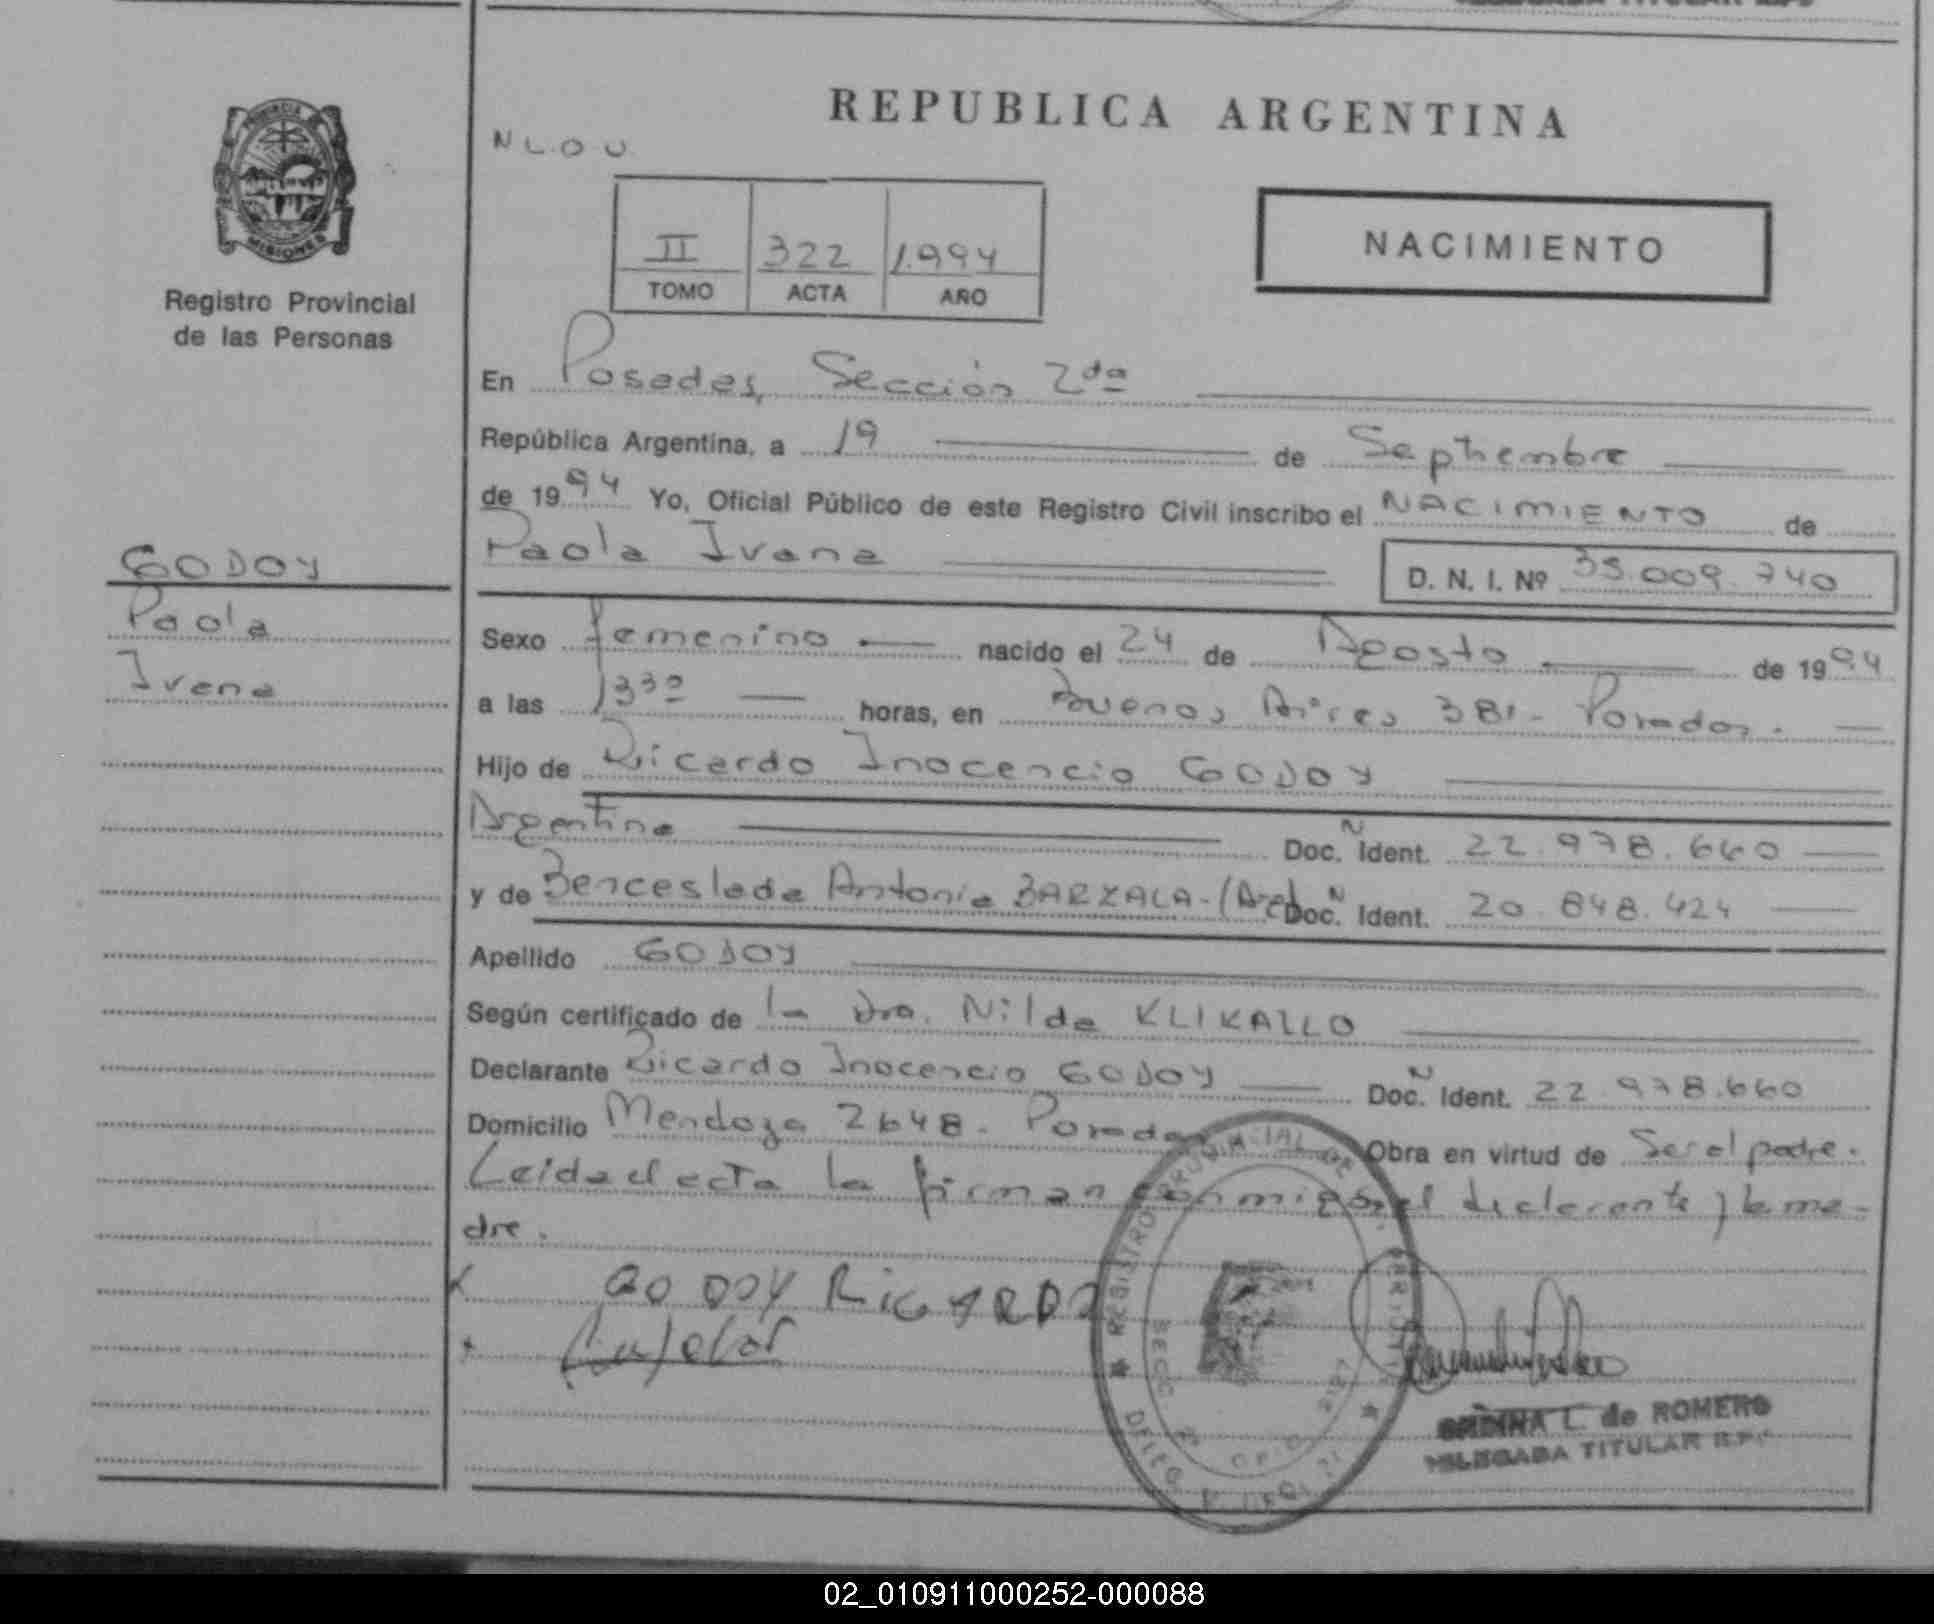 REPUBLICA ARGENTINA
N L.O U.
MISIONES
Registro Provincial
de las Personas
II 322 1.994
TOMO ACTA AÑO
NACIMIENTO
En Posadas, Sección 2da
República Argentina, a 19 de Septiembre
de 1994 Yo, Oficial Público de este Registro Civil inscribo el NACIMIENTO de
Paola Ivana
D. N. I. Nº 35.009.740
GODOY
Paola
Ivana
Sexo femenino nacido el 24 de Agosto de 1994
a las 1330 horas, en Buenos Aires 381 - Posadas.
Hijo de Ricardo Inocencio GODOY
Argentina Doc. N Ident. 22.978.660
y de Benceslada Antonia BARZALA - (Arg) Doc. N Ident. 20.848.424
Apellido GODOY
Según certificado de la Dra. Nilda KLIKAILO
Declarante Ricardo Inocencio GODOY Doc. N Ident. 22.978.660
Domicilio Mendoza 2648 - Posadas Obra en virtud de Ser el padre.
Leida el acta la firman conmigo el declarante y la ma-
dre.
GODOY RICARDO
REGISTRO PROVINCIAL DE
L. de ROMERO
DELEGADA TITULAR R.P.
02_010911000252-000088